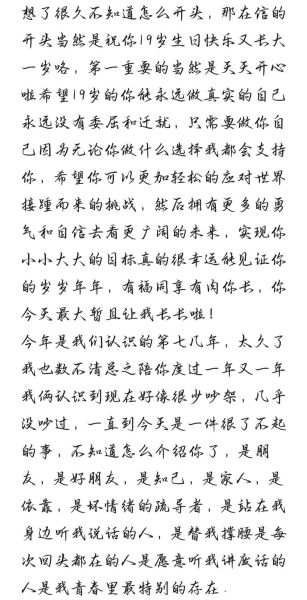 想了很久不知道怎么开头，那在信的
开头当然是祝你19岁生日快乐又长大
一岁咯，第一重要的当然是天天开心
啦希望19岁的你能永远做真实的自己
永远没有委屈和迁就，只需要做你自
己因为无论你做什么选择我都会支持
你，希望你可以更加轻松的应对世界
接踵而来的挑战，然后拥有更多的勇
气和自信去看更广阔的未来，实现你
小小大大的目标真的很幸运能见证你
的岁岁年年，有福同享有肉你长，你
今天最大暂且让我长长啦！
今年是我们认识的第七八年，太久了
我也数不清总之陪你度过一年又一年
我俩认识到现在好像很少吵架，几乎
没吵过，一直到今天是一件很了不起
的事，不知道怎么介绍你了，是朋
友，是好朋友，是知己，是家人，是
依靠，是坏情绪的疏导者，是站在我
身边听我说话的人，是替我撑腰是每
次回头都在的人是愿意听我讲废话的
人是我青春里最特别的存在.